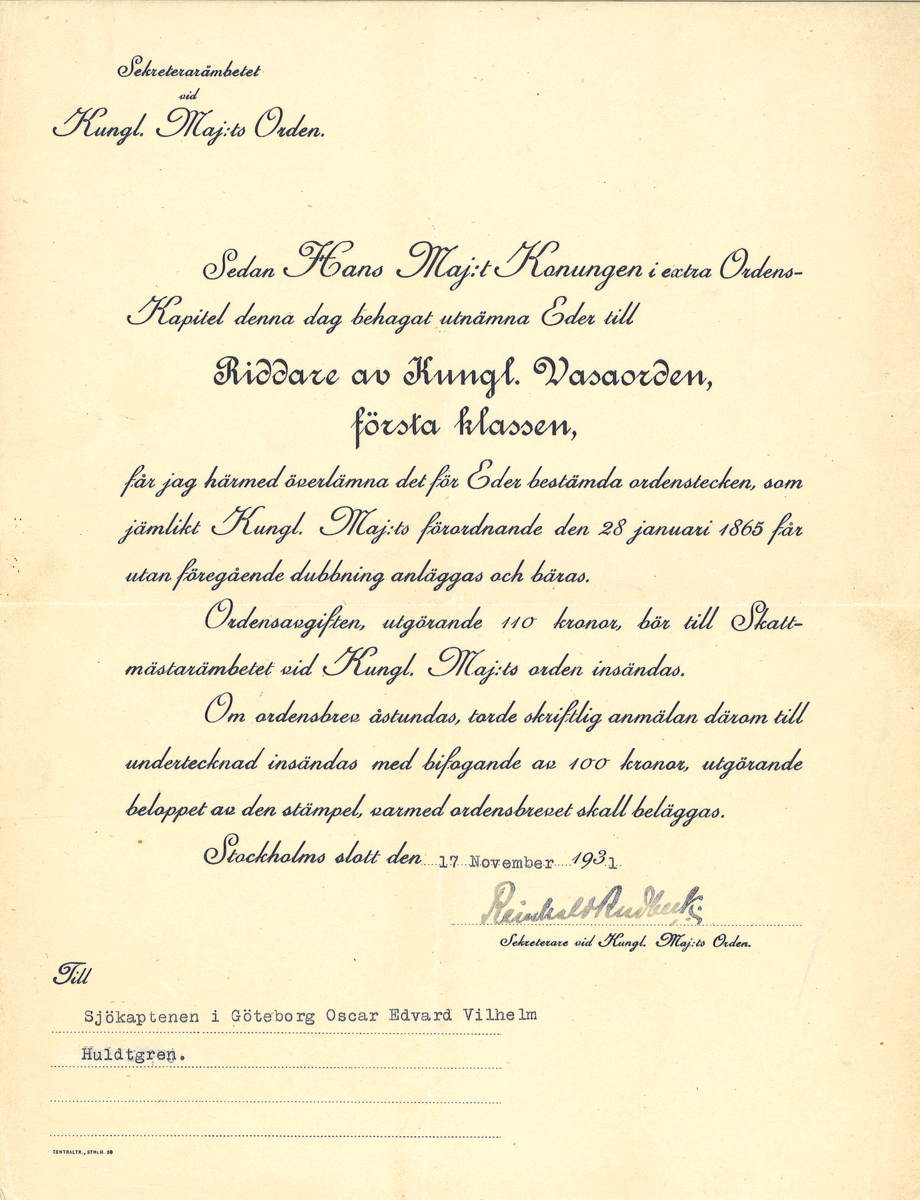 Sekreterarämbetet
vid
Kungl. Maj:ts Orden.
Sedan Hans Maj:t Konungen i extra Ordens-
Kapitel denna dag behagat utnämna Eder till
Riddare av Kungl. Vasaorden,
första klassen,
får jag härmed överlämna det för Eder bestämda ordenstecken, som
jämlikt Kungl. Maj:ts förordnande den 28 januari 1865 får
utan föregående dubbning anläggas och bäras.
Ordensavgiften, utgörande 110 kronor, bör till Skatt-
mästarämbetet vid Kungl. Maj:ts orden insändas.
Om ordensbrev åstundas, torde skriftlig anmälan därom till
undertecknad insändas med bifogande av 100 kronor, utgörande
beloppet av den stämpel, varmed ordensbrevet skall beläggas.
Stockholms slott den 17 November 1931
Reinhold Rudbeck
Sekreterare vid Kungl. Maj:ts Orden.
Till
Sjökaptenen i Göteborg Oscar Edvard Vilhelm
Huldtgren.
CENTRALTR., STHLM. 30